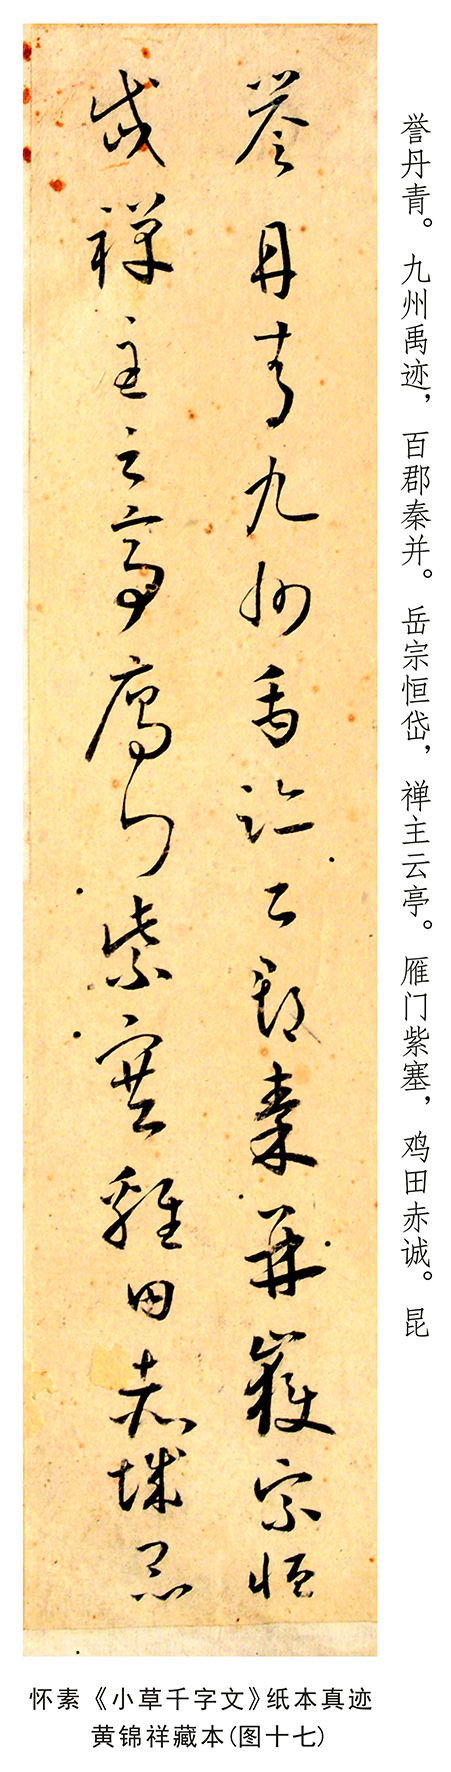 誉丹青。九州禹迹，百郡秦并。岳宗恒岱，禅主云亭。雁门紫塞，鸡田赤诚。昆
譽丹青九州禹跡百郡秦并嶽宗恒
岱禪主云亭鴈門紫塞雞田赤城昆
怀素《小草千字文》纸本真迹
黄锦祥藏本(图十七)